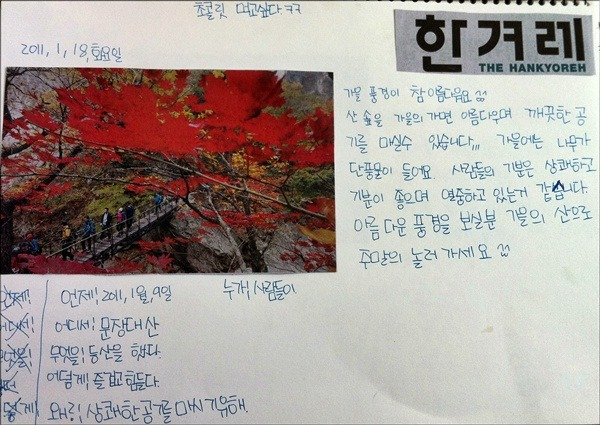 초콜릿 먹고싶다 ㅋㅋ
2011, 1, 18, 화요일
한겨레
THE HANKYOREH
가을 풍경이 참 아름다워요
산 숲을 가을의 가면 아름다우며 깨끗한 공
기를 마실수 있습니다,,, 가을에는 나무가
단풍물이 들어요. 사람들의 기분은 상쾌하고
기분이 좋으며 열중하고 있는거 같습니다
아름다운 풍경을 보실분 가을의 산으로
주말의 놀러 가세요
언제! 2011, 1월, 9일
누가! 사람들이
어디서! 문장대산
무엇을! 등산을 했다.
어떻게! 즐겁고 힘들다.
왜!
상쾌한 공기를 마시기 위해.